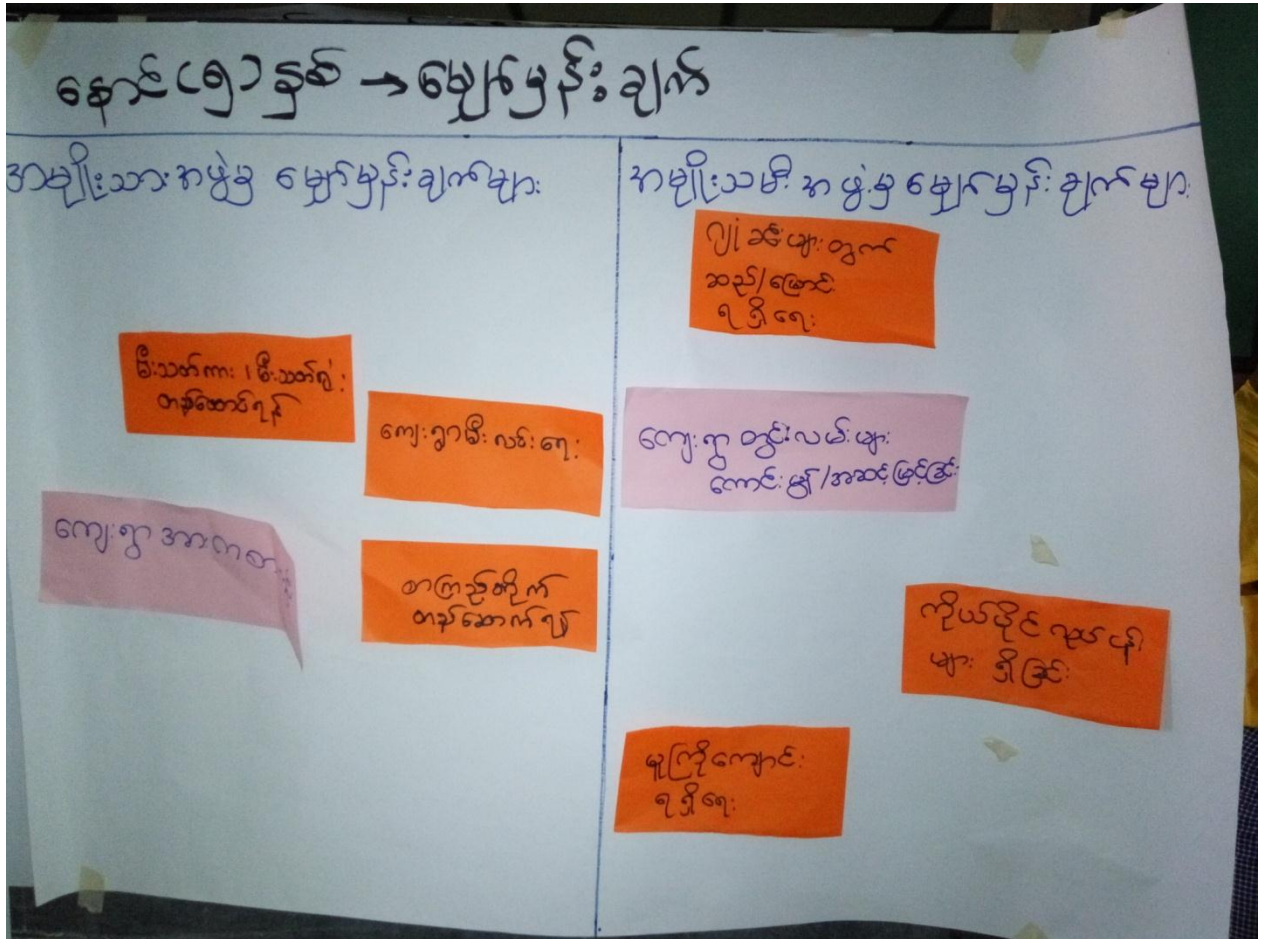 နောင် (၅) နှစ် → မျှော်မှန်းချက်
အမျိုးသားအဖွဲ့မှ မျှော်မှန်းချက်များ
မီးသတ်ကား၊ မီးသတ်ရုံး
တည်ထောင်ရန်
ကျေးရွာမီးလင်းရေး
ကျေးရွာ အားကစား
စာကြည့်တိုက်
တည်ဆောက်ရန်
အမျိုးသမီးအဖွဲ့မှ မျှော်မှန်းချက်များ
လျှိုခင်းများတွက်
ဆည်/မြောင်း
ရရှိရေး
ကျေးရွာတွင်းလမ်းများ
ကောင်းမွန်/အဆင့်မြှင့်ခြင်း
ကိုယ်ပိုင်လုပ်ငန်း
များ ရှိခြင်း
မူကြိုကျောင်း
ရရှိရေး